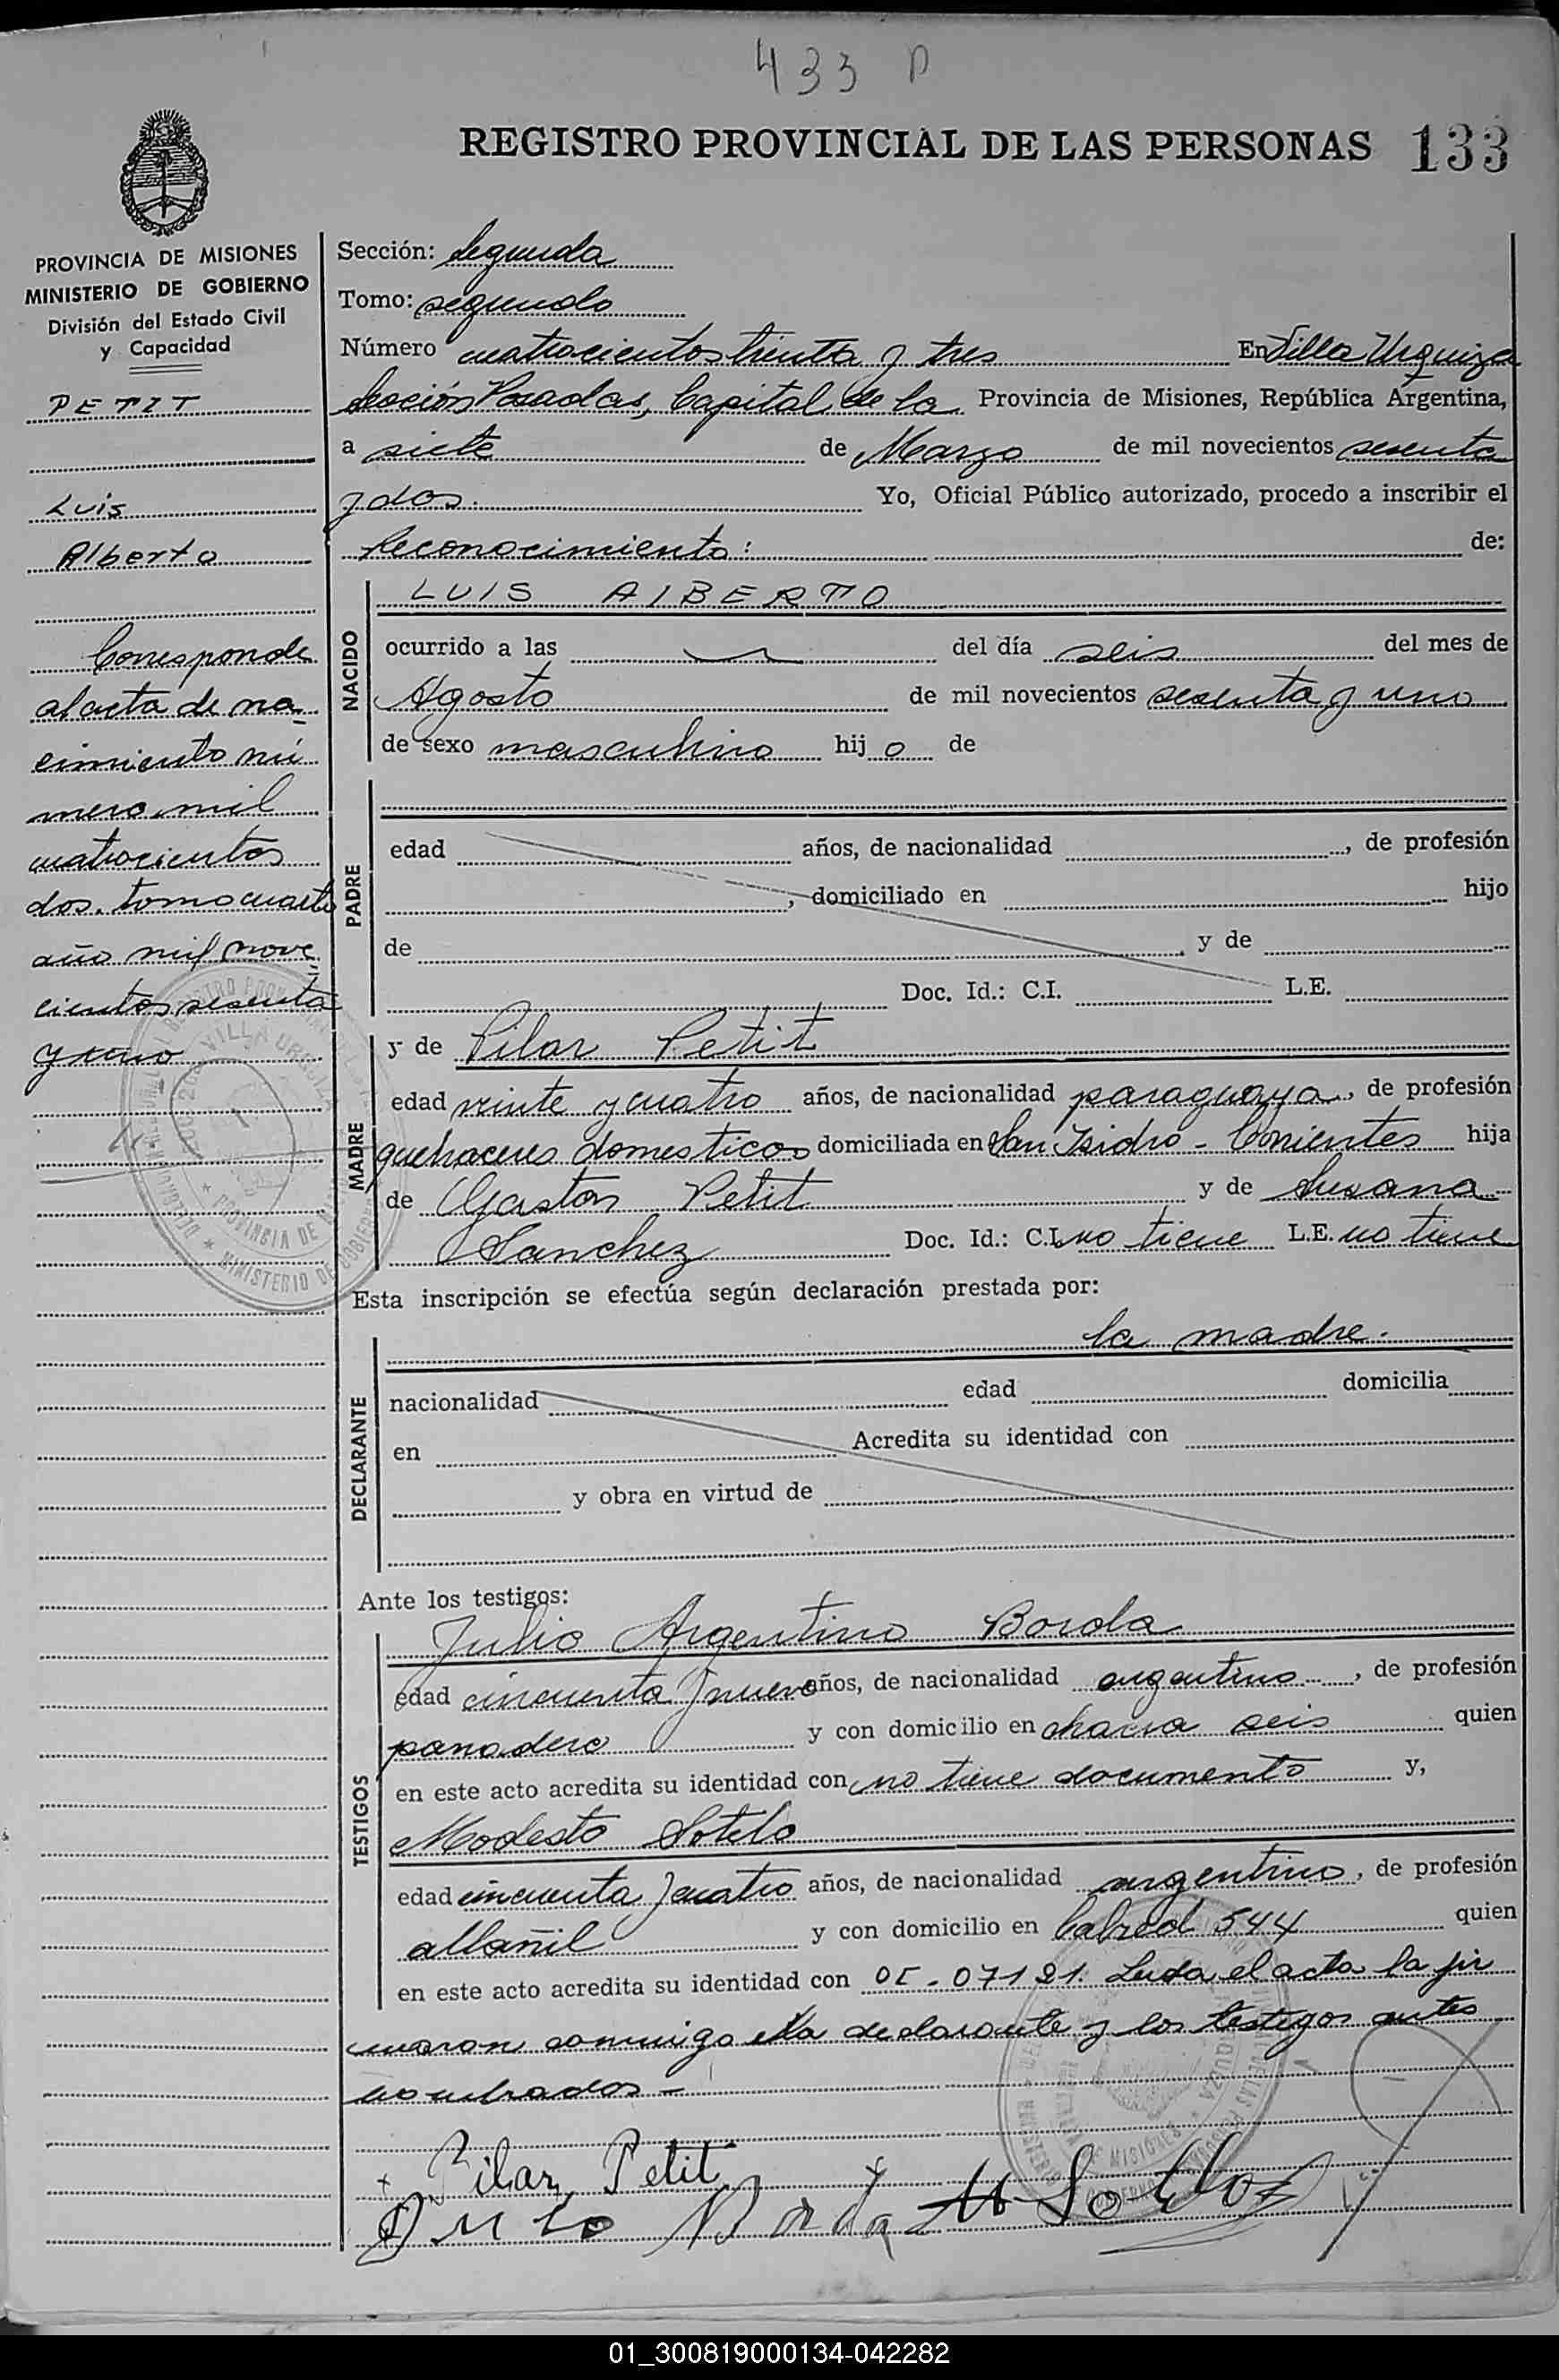 433 P
REGISTRO PROVINCIAL DE LAS PERSONAS 133
PROVINCIA DE MISIONES
MINISTERIO DE GOBIERNO
División del Estado Civil
y Capacidad
PETIT
Luis
Alberto
Corresponde
al acta de na
cimiento nú
mero mil
cuatrocientos
dos. tomo cuarto
año mil nove
cientos sesenta
y uno
Sección: Segunda
Tomo: segundo
Número cuatrocientos treinta y tres En Villa Urquiza
Sección Posadas, Capital de la Provincia de Misiones, República Argentina,
a siete de Marzo de mil novecientos sesenta
y dos. Yo, Oficial Público autorizado, procedo a inscribir el
Reconocimiento: de:
NACIDO
LUIS AlBERTO
ocurrido a las del día seis del mes de
Agosto de mil novecientos sesenta y uno
de sexo masculino hijo de
PADRE
edad años, de nacionalidad , de profesión
, domiciliado en hijo
de y de
Doc. Id.: C.I. L.E.
MADRE
y de Pilar Petit
edad veinte y cuatro años, de nacionalidad paraguaya, de profesión
quehaceres domesticos domiciliada en San Isidro - Corrientes hija
de Gaston Petit y de Susana
Sanchez Doc. Id.: C.I. no tiene L.E. no tiene
Esta inscripción se efectúa según declaración prestada por:
la madre.
DECLARANTE
nacionalidad edad domicilia
en Acredita su identidad con
y obra en virtud de
Ante los testigos:
TESTIGOS
Julio Argentino Borda
edad cincuenta y nueve años, de nacionalidad argentino, de profesión
panadero y con domicilio en chacra seis quien
en este acto acredita su identidad con no tiene documento y,
Modesto Sotelo
edad cincuenta y cuatro años, de nacionalidad argentino, de profesión
albañil y con domicilio en Cabred 544 quien
en este acto acredita su identidad con Leida el acta la fir
maron conmigo la declarante y los testigos antes
nombrados -
Pilar Petit
Borda M Sotelo
01_300819000134-042282